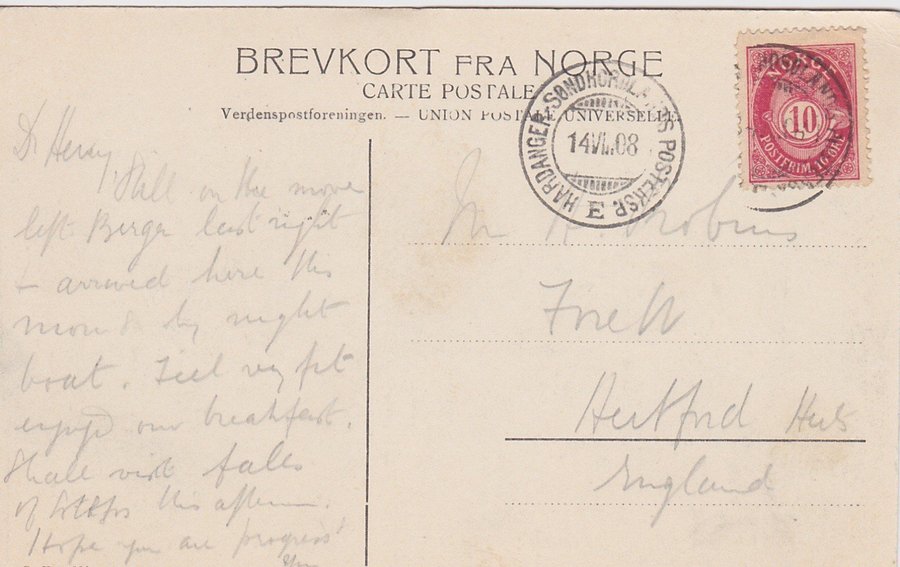 BREVKORT FRA NORGE
CARTE POSTALE
Verdenspostforeningen. — UNION POSTALE UNIVERSELLE
HARDANGER-SØNDHORDLANDS POSTEKSP. E
14 VI. 08
NORGE
10
POSTFRIM. 10 ØRE
Dr Henry
Still on the move
left Bergen last night
+ arrived here this
morng by night
boat. Feel very fit
enjoyed our breakfast.
Shall visit falls
of this afternn.
Hope you are progress
Mr
Hertford Herts
England